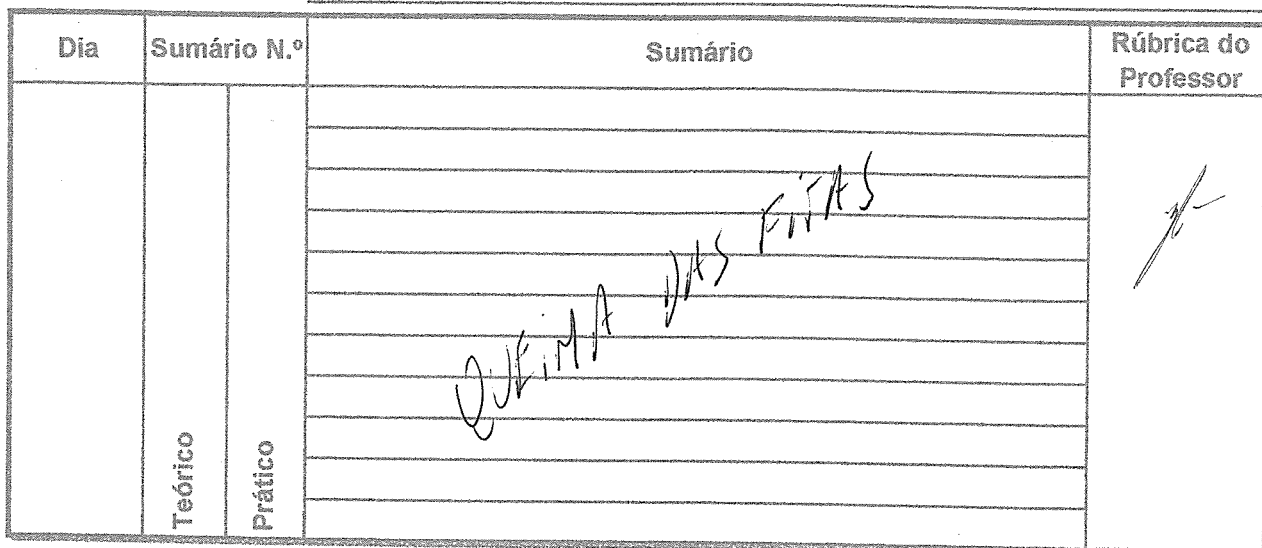 Dia
Sumário N.º
Sumário
Rúbrica do
Professor
Teórico
Prático
QUEIMA DAS FITAS